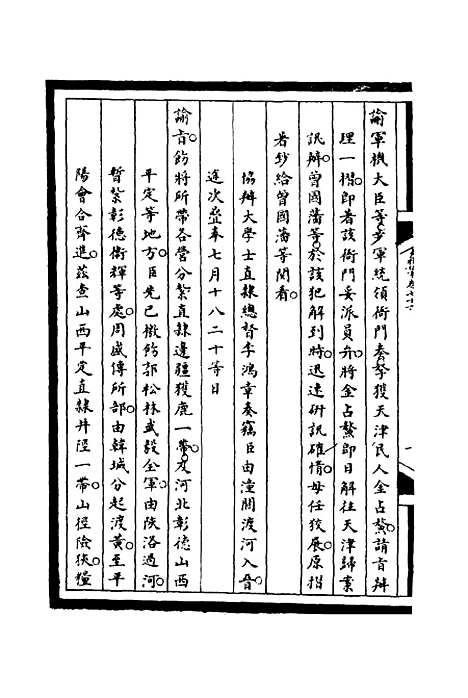 諭軍機大臣等步軍統領衙門奏拏獲天津民人金占鰲請旨辦
理一摺即著該衙門妥派員弁將金占鰲即日解往天津歸案
訊辦曾國藩等於該犯解到時迅速研訊確情毋任狡展原摺
著鈔給曾國藩等閱看
協辦大學士直隸總督李鴻章奏竊臣由潼關渡河入晉
連次疊奉七月十八二十等日
諭旨飭將所帶各營分紮直隸邊疆獲鹿一帶及河北彰德山西
平定等地方臣先已檄飭郭松林武毅全軍由陝洛過河
暫紮彰德衛輝等處周盛傳所部由韓城分起渡黃至平
陽會合齊進茲查山西平定直隸井陘一帶山徑險狹糧